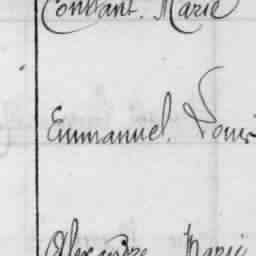 Constant. Marie
Emmanuel. Louis
Alexandre Marie